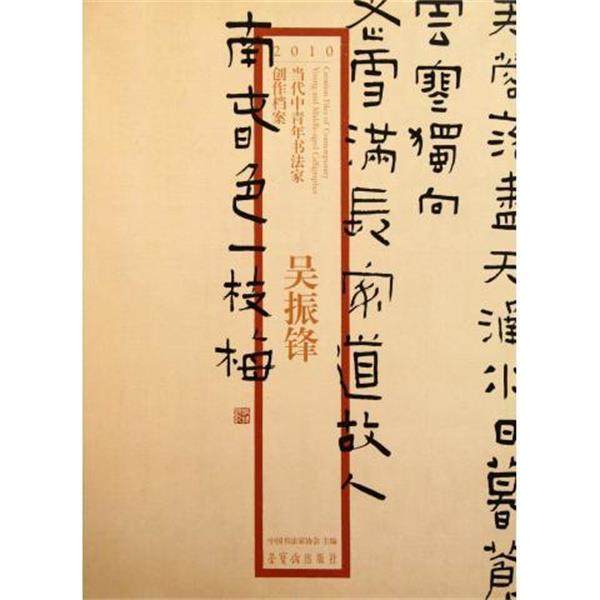 芙蓉落盡天涵水日暮
雲寒獨向
老雪滿長安道故人
南春色一枝梅
2010
Creation Files of Contemporary
Young and Middle-aged Calligrapher
当代中青年书法家
创作档案
吴振锋
中国书法家协会 主编
荣宝斋出版社